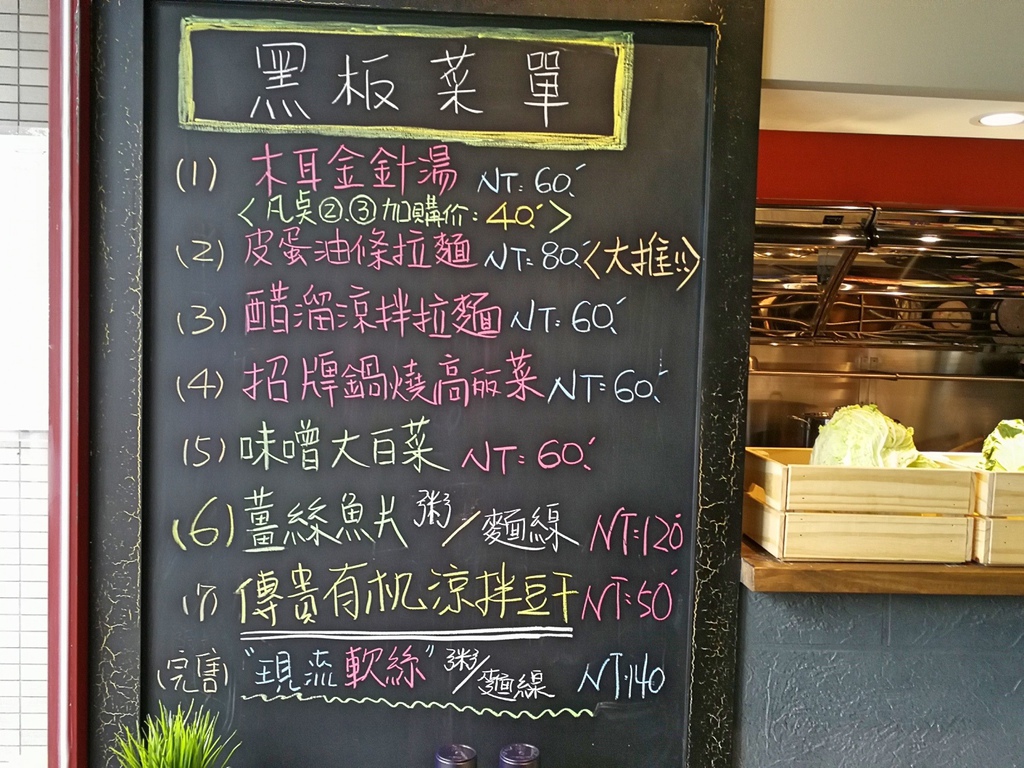 黑板菜單
(1) 木耳金針湯 NT:60.
<凡点②.③加購价:40.>
(2) 皮蛋油條拉麵 NT:80.<大推!!>
(3) 醋溜涼拌拉麵 NT:60.
(4) 招牌鍋燒高丽菜 NT:60.
(5) 味噌大白菜 NT:60.
(6) 薑絲魚片粥/麵線 NT:120
(7) 傳貴有机涼拌豆干 NT:50
(完售) "現流軟絲"粥/麵線 NT.140